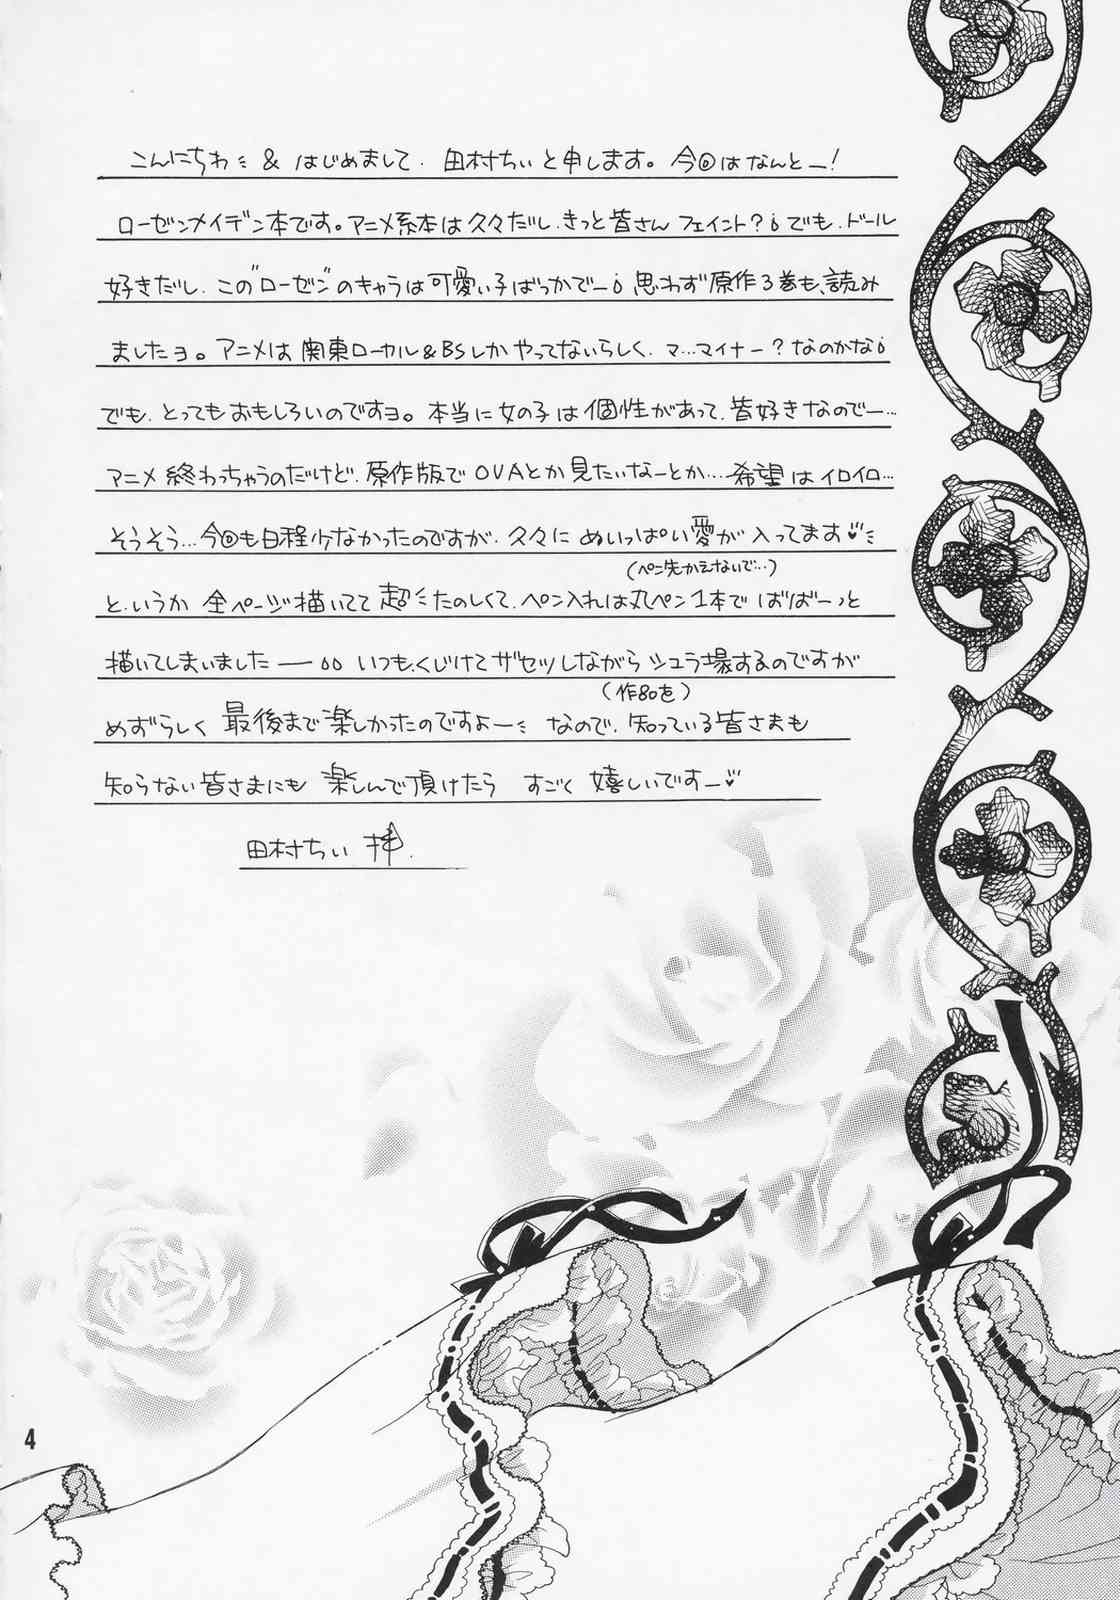 こんにちわミ & はじめまして. 田村ちぃと申します。今回はなんとー!
ローゼンメイデン本です。アニメ系本は久々だし、きっと皆さん フェイント?! でも、ドール
好きだし、この"ローゼン"のキャラは可愛い子ばっかでー! 思わず原作3巻も、読み
ましたヨ。アニメは関東ローカル&BSしかやってないらしく、マ…マイナー?なのかな!
でも、とってもおもしろいのですヨ。本当に女の子は個性があって、皆好きなのでー…
アニメ終わっちゃうのだけど、原作版でOVAとか見たいなーとか…希望はイロイロ…
そうそう…今回も日程少なかったのですが、久々にめいっぱい愛が入ってます♡ミ
(ペン先かえないで…)
と、いうか 全ページ描いてて超ミたのしくて、ペン入れは丸ペン1本でばばーっと
描いてしまいましたー いつも、くじけてザセツしながらシュラ場するのですが
(作80を)
めずらしく最後まで楽しかったのですよーミ なので、知っている皆さまも
知らない皆さまにも 楽しんで頂けたら すごく 嬉しいですー♡
田村ちぃ 拝.
4